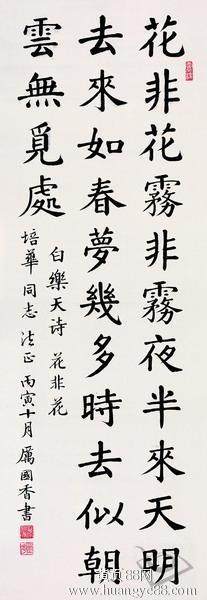 花非花霧非霧夜半來天明
去來如春夢幾多時去似朝
雲無覓處
白樂天诗 花非花
培華同志 法正 丙寅十月 厲國香書
黄页88网
www.huangye88.com